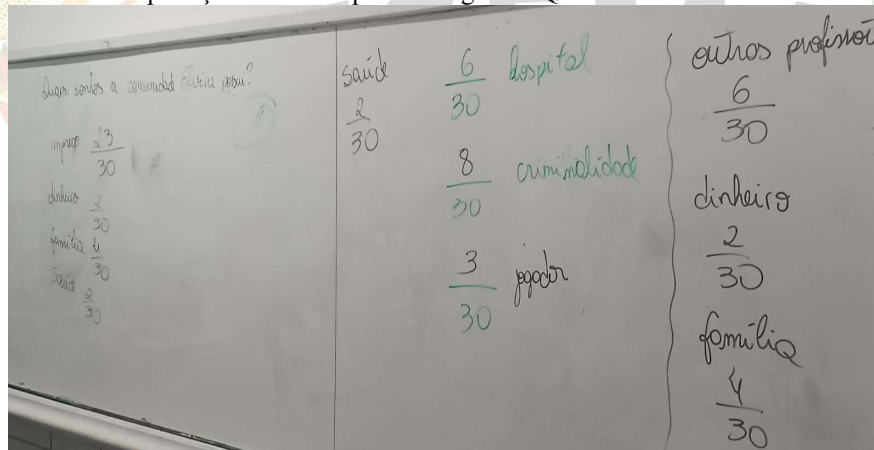 Quais sonhos a comunidade possui?
emprego 23
30
dinheiro 2
30
família 4
30
Saúde
2
30
saúde
2
30
6
30 hospital
8
30 criminalidade
3
30 jogador
outros
6
30
dinheiro
2
30
família
4
30